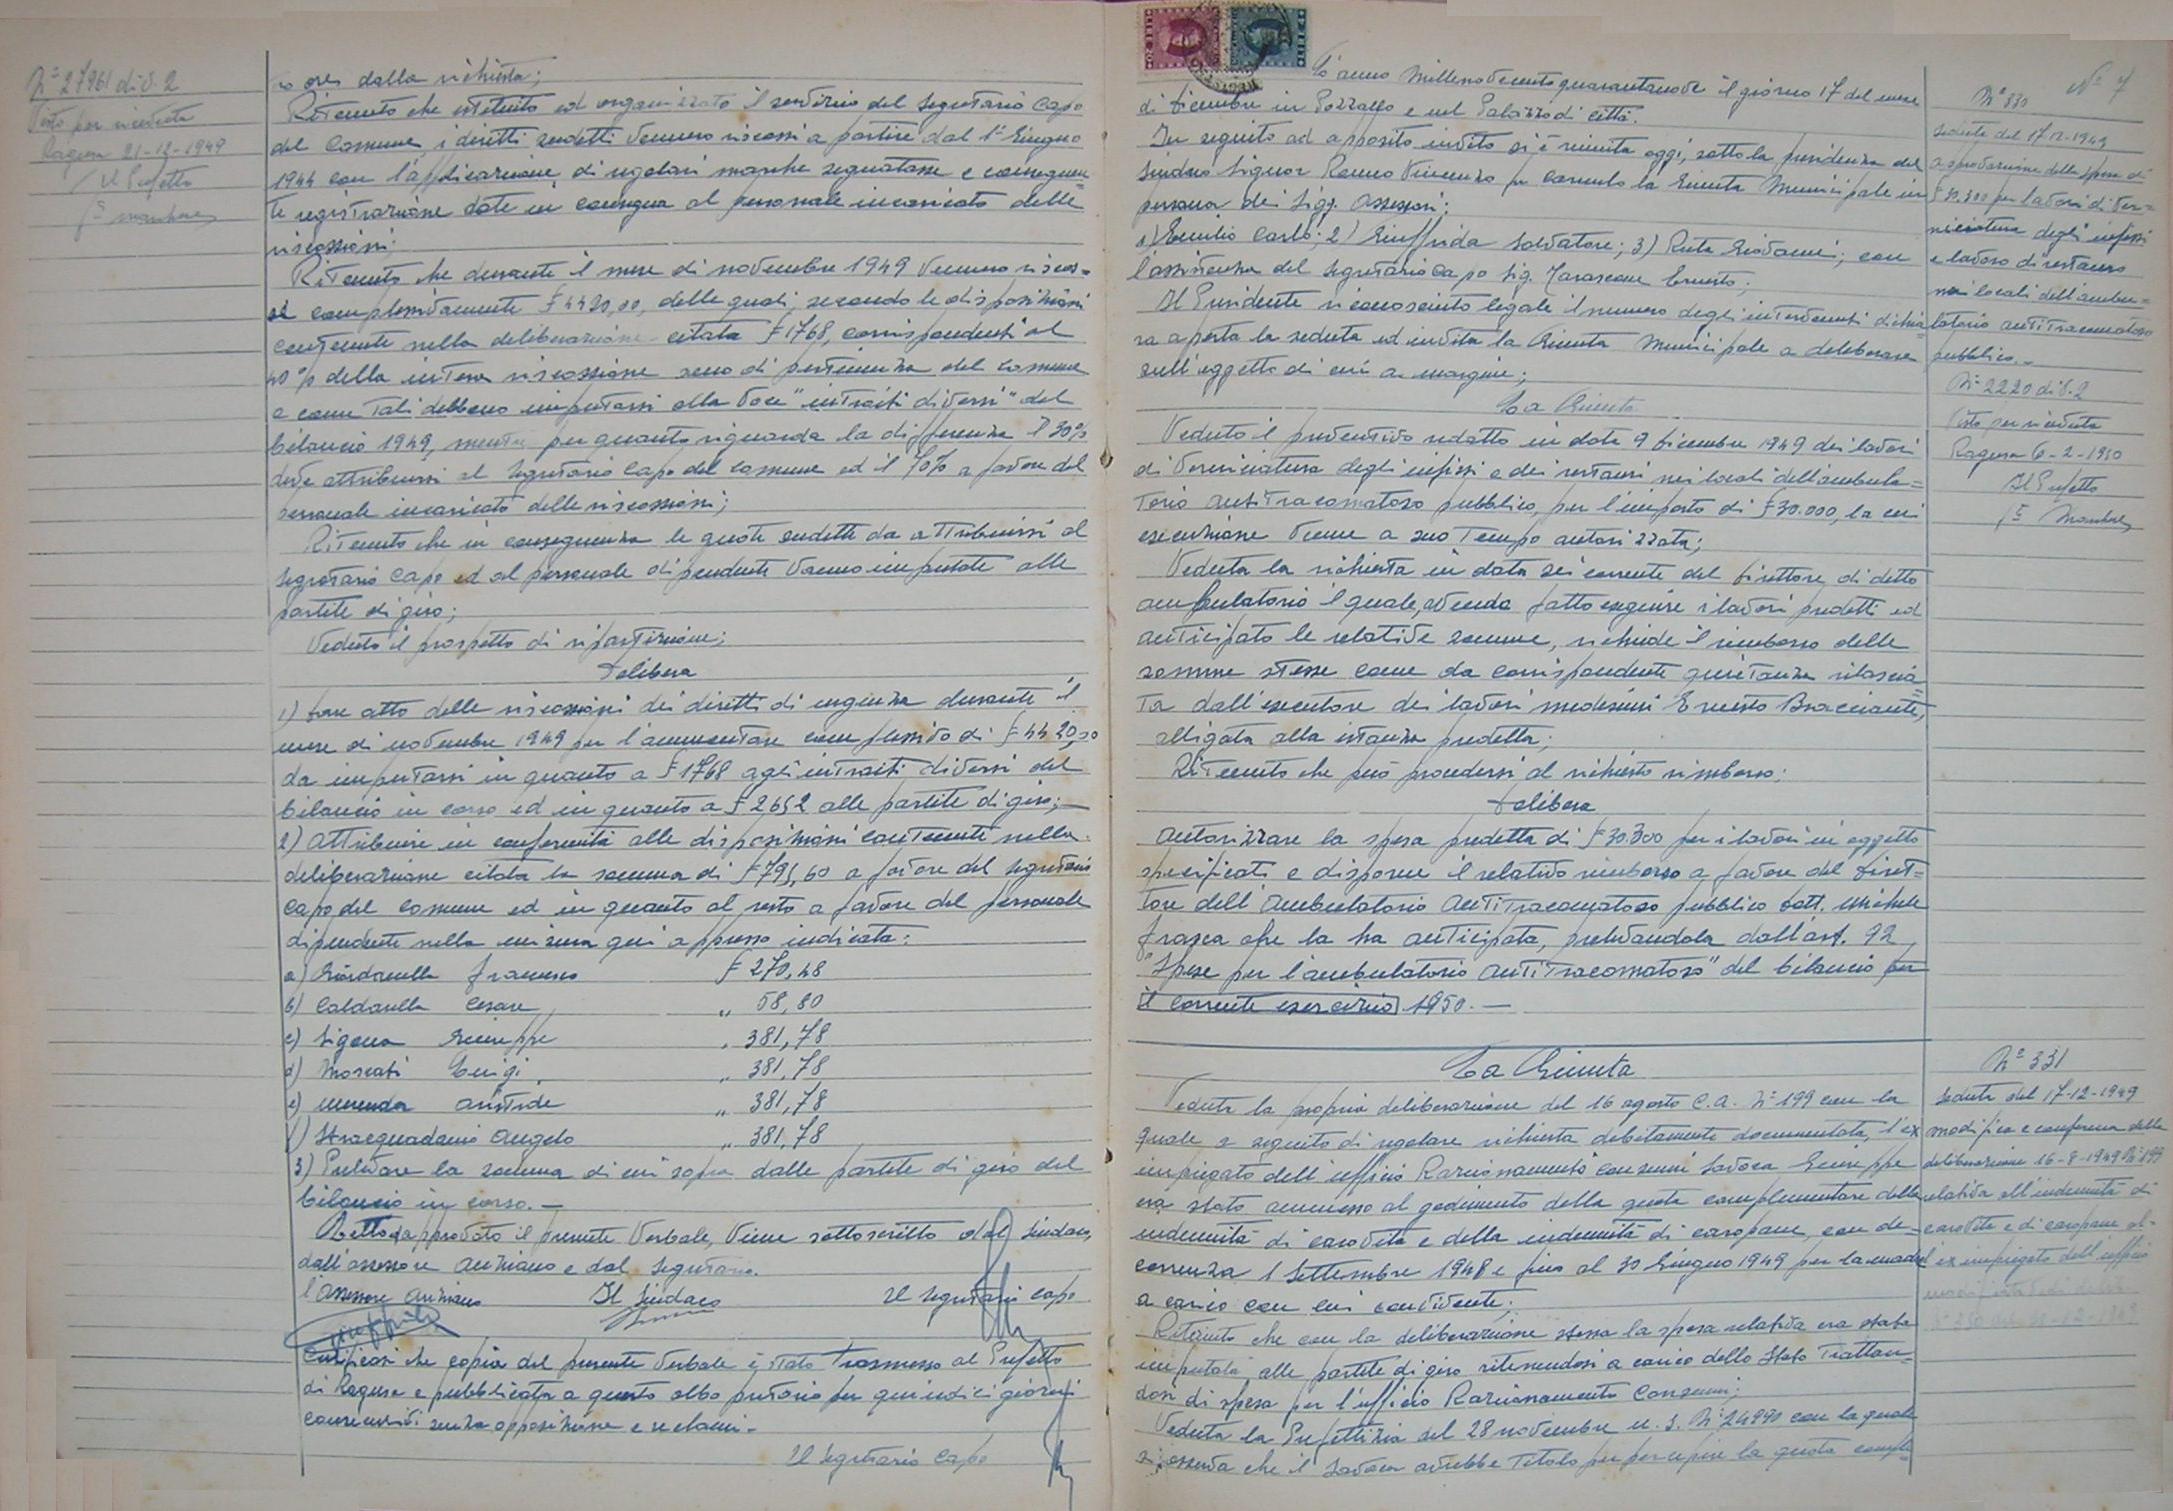 N° 27961 div. 2
Visto per ricevuta
Ragusa 21-12-1949
Il Prefetto
ore dalla richiesta;
Ritenuto che istituito ed organizzato il servizio del Segretario Capo
del Comune, i diritti sudetti vennero riscossi a partire dal 1° Giugno
1944 con l'applicazione di regolari marche segnatasse e conseguen
te registrazione date in consegna al personale incaricato delle
riscossioni;
Ritenuto che durante il mese di novembre 1949 vennero riscos=
si complessivamente £ 4420,00, delle quali, secondo le disposizioni
contenute nella deliberazione citata £ 1768, corrispondenti al
40% della intera riscossione sono di pertinenza del comune
e come tali debbono imputarsi alla voce "introiti diversi" del
bilancio 1949, mentre per quanto riguarda la differenza il 30%
deve attribuirsi al Segretario Capo del Comune ed il 70% a favore del
personale incaricato delle riscossioni;
Ritenuto che in conseguenza le quote sudette da attribuirsi al
Segretario Capo ed al personale dipendente vanno imputate alle
partite di giro;
Veduto il prospetto di ripartizione;
Delibera
1) Dare atto delle riscossioni dei diritti di urgenza durante il
mese di novembre 1949 per l'ammontare complessivo di £ 4420,00
da imputarsi in quanto a £ 1768 agli introiti diversi del
bilancio in corso ed in quanto a £ 2652 alle partite di giro;
2) Attribuire in conformità alle disposizioni contenute nella
deliberazione citata la somma di £ 795,60 a favore del Segretario
Capo del Comune ed in quanto al resto a favore del personale
dipendente nella misura qui appresso indicata:
a) Giardanella Francesco £ 270,48
b) Caldarella Cesare " 58,80
c) Sigona Giuseppe " 381,78
d) Moscati Luigi " 381,78
e) Merenda Aristide " 381,78
f) Stracquadanio Angelo " 381,78
3) Prelevare la somma di cui sopra dalle partite di giro del
bilancio in corso.—
Letto ed approvato il presente verbale, viene sottoscritto dal Sindaco,
dall'assessore anziano e dal Segretario.
l'Assessore Anziano Il Sindaco Il Segretario Capo
Certificasi che copia del presente verbale è stato trasmesso al Prefetto
di Ragusa e pubblicata a questo albo pretorio per quindici giorni
consecutivi senza opposizione e reclami.
Il Segretario Capo
N° 7
L'anno Millenovecentoquarantanove il giorno 17 del mese
di Dicembre in Pozzallo e nel Palazzo di città.
In seguito ad apposito invito si è riunita oggi, sotto la presidenza del
Sindaco Signor Rosso Vincenzo fu Carmelo la Giunta Municipale in
persona dei Sigg. Assessori:
1) Emilio Carlo; 2) Giuffrida Salvatore; 3) Ruta Giovanni; con
l'assistenza del Segretario Capo Sig. Tarascone Ernesto;
Il Presidente riconosciuto legale il numero degli intervenuti dichia
ra aperta la seduta ed invita la Giunta Municipale a deliberare
sull'oggetto di cui a margine;
La Giunta
Veduto il preventivo redatto in data 9 Dicembre 1949 dei lavori
di verniciatura degli infissi e dei restauri nei locali dell'ambula=
torio antitracomatoso pubblico, per l'importo di £ 30.000, la cui
esecuzione venne a suo tempo autorizzata;
Veduta la richiesta in data sei corrente del Direttore di detto
ambulatorio il quale, avendo fatto eseguire i lavori predetti ed
anticipato le relative somme, richiede il rimborso delle
somme stesse come da corrispondente quietanza rilascia
ta dall'esecutore dei lavori medesimi Ernesto Bracciante,
alligata alla istanza predetta;
Ritenuto che può procedersi al richiesto rimborso;
Delibera
Autorizzare la spesa predetta di £ 30.300 per i lavori in oggetto
specificati e disporre il relativo rimborso a favore del Diret=
tore dell'Ambulatorio Antitracomatoso pubblico Dott. Michele
Frasca che la ha anticipata, prelevandola dall'art. 92
"Spese per l'ambulatorio antitracomatoso" del bilancio per
il corrente esercizio 1950.—
N° 330
Seduta del 17-12-1949
approvazione della spesa di
£ 30.300 per lavori di ver=
niciatura degli infissi
e lavoro di restauro
nei locali dell'ambu=
latorio antitracomatoso
pubblico.—
N° 2220 div. 2
Visto per ricevuta
Ragusa 6-2-1950
Il Prefetto
La Giunta
Veduta la propria deliberazione del 16 agosto c.a. N° 199 con la
quale a seguito di regolare richiesta debitamente documentata, l'ex
impiegato dell'ufficio Razionamento consumi Savoca Giuseppe
era stato ammesso al godimento della quota complementare della
indennità di carovita e della indennità di caropane, con de=
correnza 1 Settembre 1948 e fino al 30 Giugno 1949 per la madre
a carico con lui convivente;
Ritenuto che con la deliberazione stessa la spesa relativa era stata
imputata alle partite di giro ritenendosi a carico dello Stato trattan=
dosi di spesa per l'ufficio Razionamento Consumi;
Veduta la Prefettizia del 28 novembre u.s. N° 24990 con la quale
si osserva che il Savoca avrebbe titolo per percepire la quota comple
N° 331
Seduta del 17-12-1949
modifica e conferma della
deliberazione 16-8-1949 N° 199
relativa all'indennità di
carovita e di caropane al=
l'ex impiegato dell'ufficio